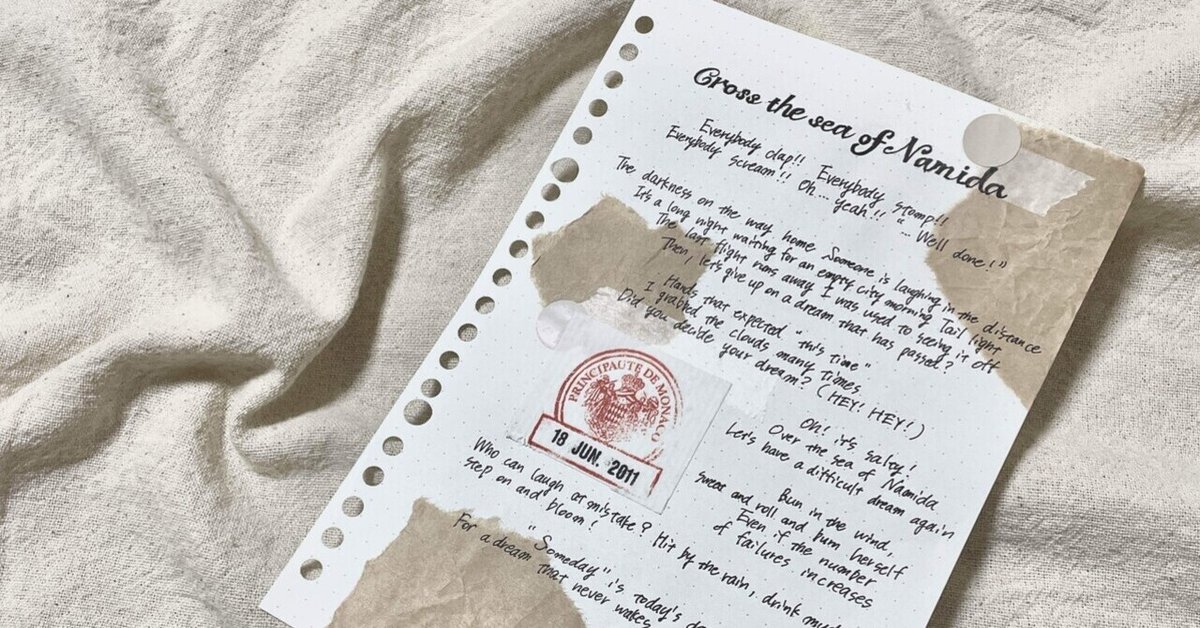 Cross the sea of Namida
Everybody clap!! Everybody stomp!!
Everybody scream!! Oh... yeah!! "... Well done!"
The darkness on the way home Someone is laughing in the distance
It's a long night waiting for an empty city morning Tail light
The last flight runs away I was used to seeing it off
Then, let's give up on a dream that has passed?
Hands that expected "this time"
I grabbed the clouds many times
Did you decide your dream? (HEY! HEY!)
Oh! it's salty!
Over the sea of Namida
Let's have a difficult dream again
Bun in the wind,
Sweat and roll and burn herself
Even if the number
of failures increases
PRINCIPAUTE DE MONACO
18 JUN. 2011
Who can laugh at mistake? Hit by the rain, drink mud
step on and bloom!
"Someday" is today's
For a dream that never wakes